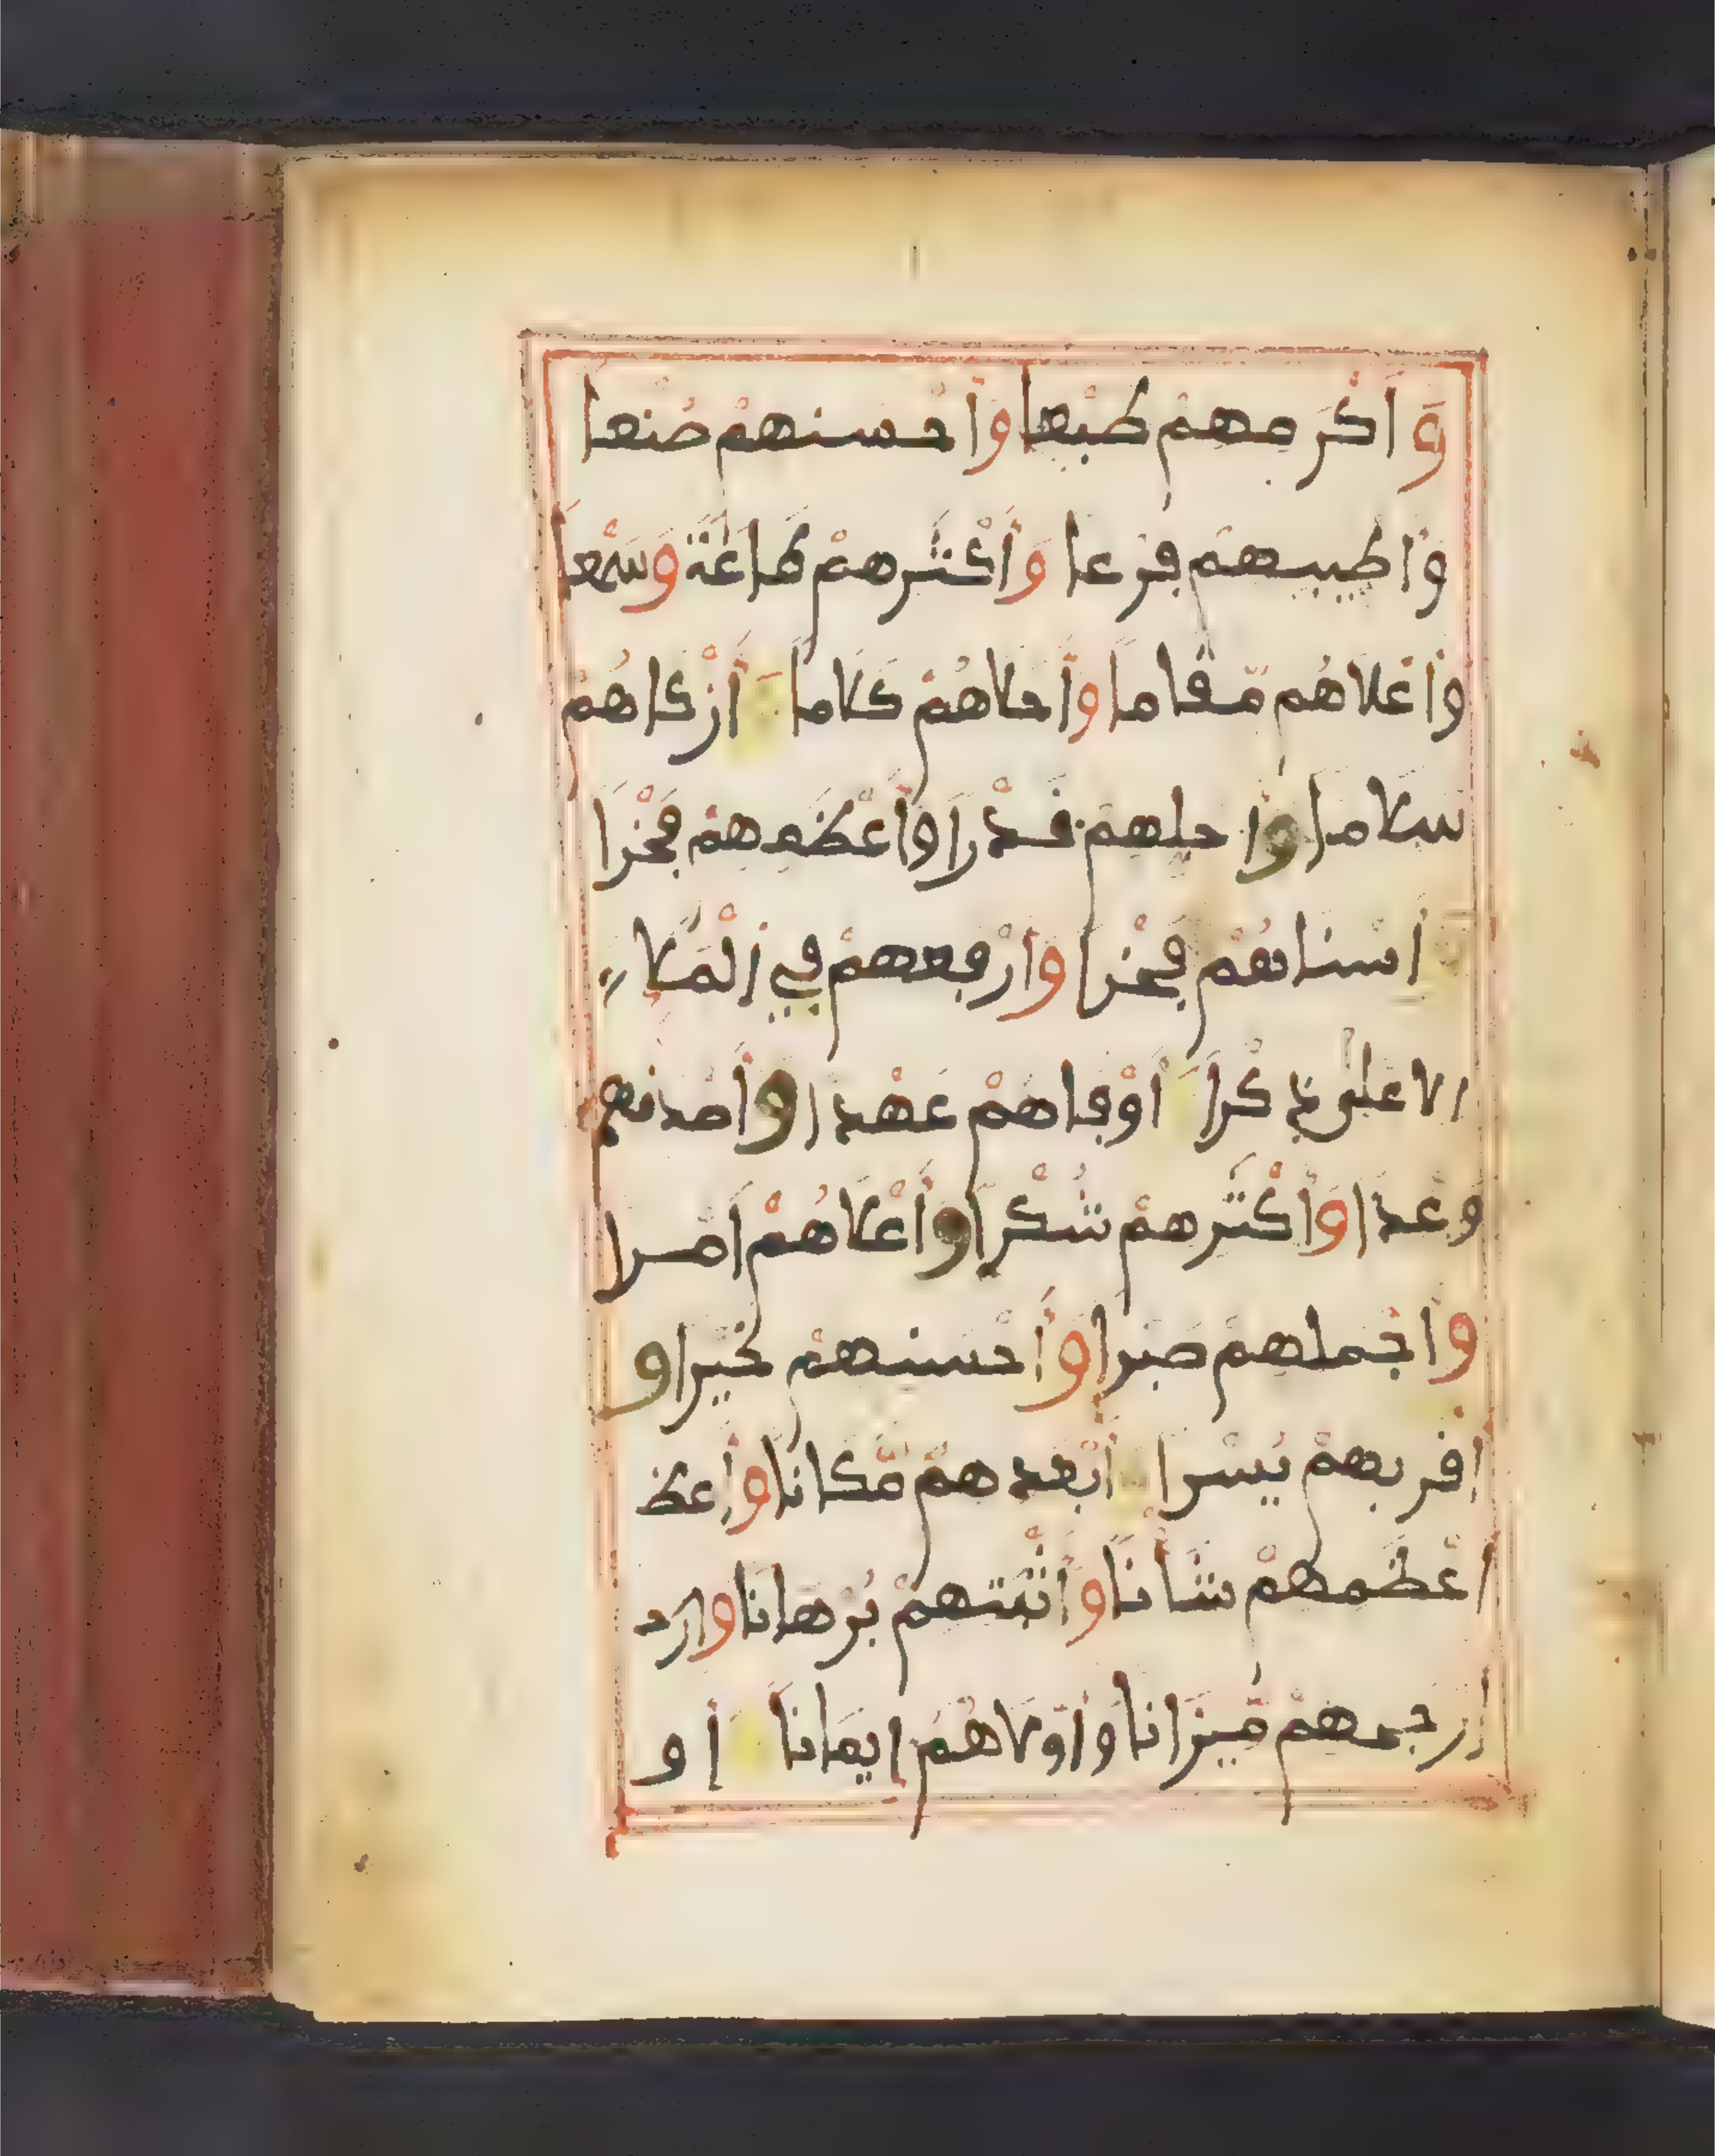 وَأَكْرَمِهِمْ طَبْعا وَأَحْسَنِهِمْ صُنْعا
وَأَطْيَبِهِم فَرْعا وَأَكْثَرِهِمْ طَاعَةً وَسَمْعا
وَأَعْلَاهُم مَّقَاما وَأَحْلَاهُمْ كَلَاما أَزْكَاهُمْ
سَلَاما وَأَجَلِّهِمْ قَدْرَا وَأَعْظَمِهِمْ فَخْرَا
أَسْنَاهُمْ فَخْرا وَأَرْفَعِهِمْ فِي اَلْمَلَا
الاعلى ذِكْرَا أَوْفَاهُمْ عَهْدا وَأَصْدَقِهِم
وَعْدَا وَأَكْثَرِهِمْ شُكْرَا وَأَعْلَاهُمْ أَمْرا
وَأَجْمَلِهِمْ صَبْرا وَأَحْسَنِهِمْ خَيْرا و
أَقْرَبِهِمْ يُسْرا أَبْعَدِهِمْ مَّكَانا وأعظ
أَعْظَمِهِمْ شَأْنا وَأَثْبَتِهِمْ بُرْهَانا وارج
أرجحهم مِّيزَانا وَأَوَّلَاهُمْ إِيمَانا أو